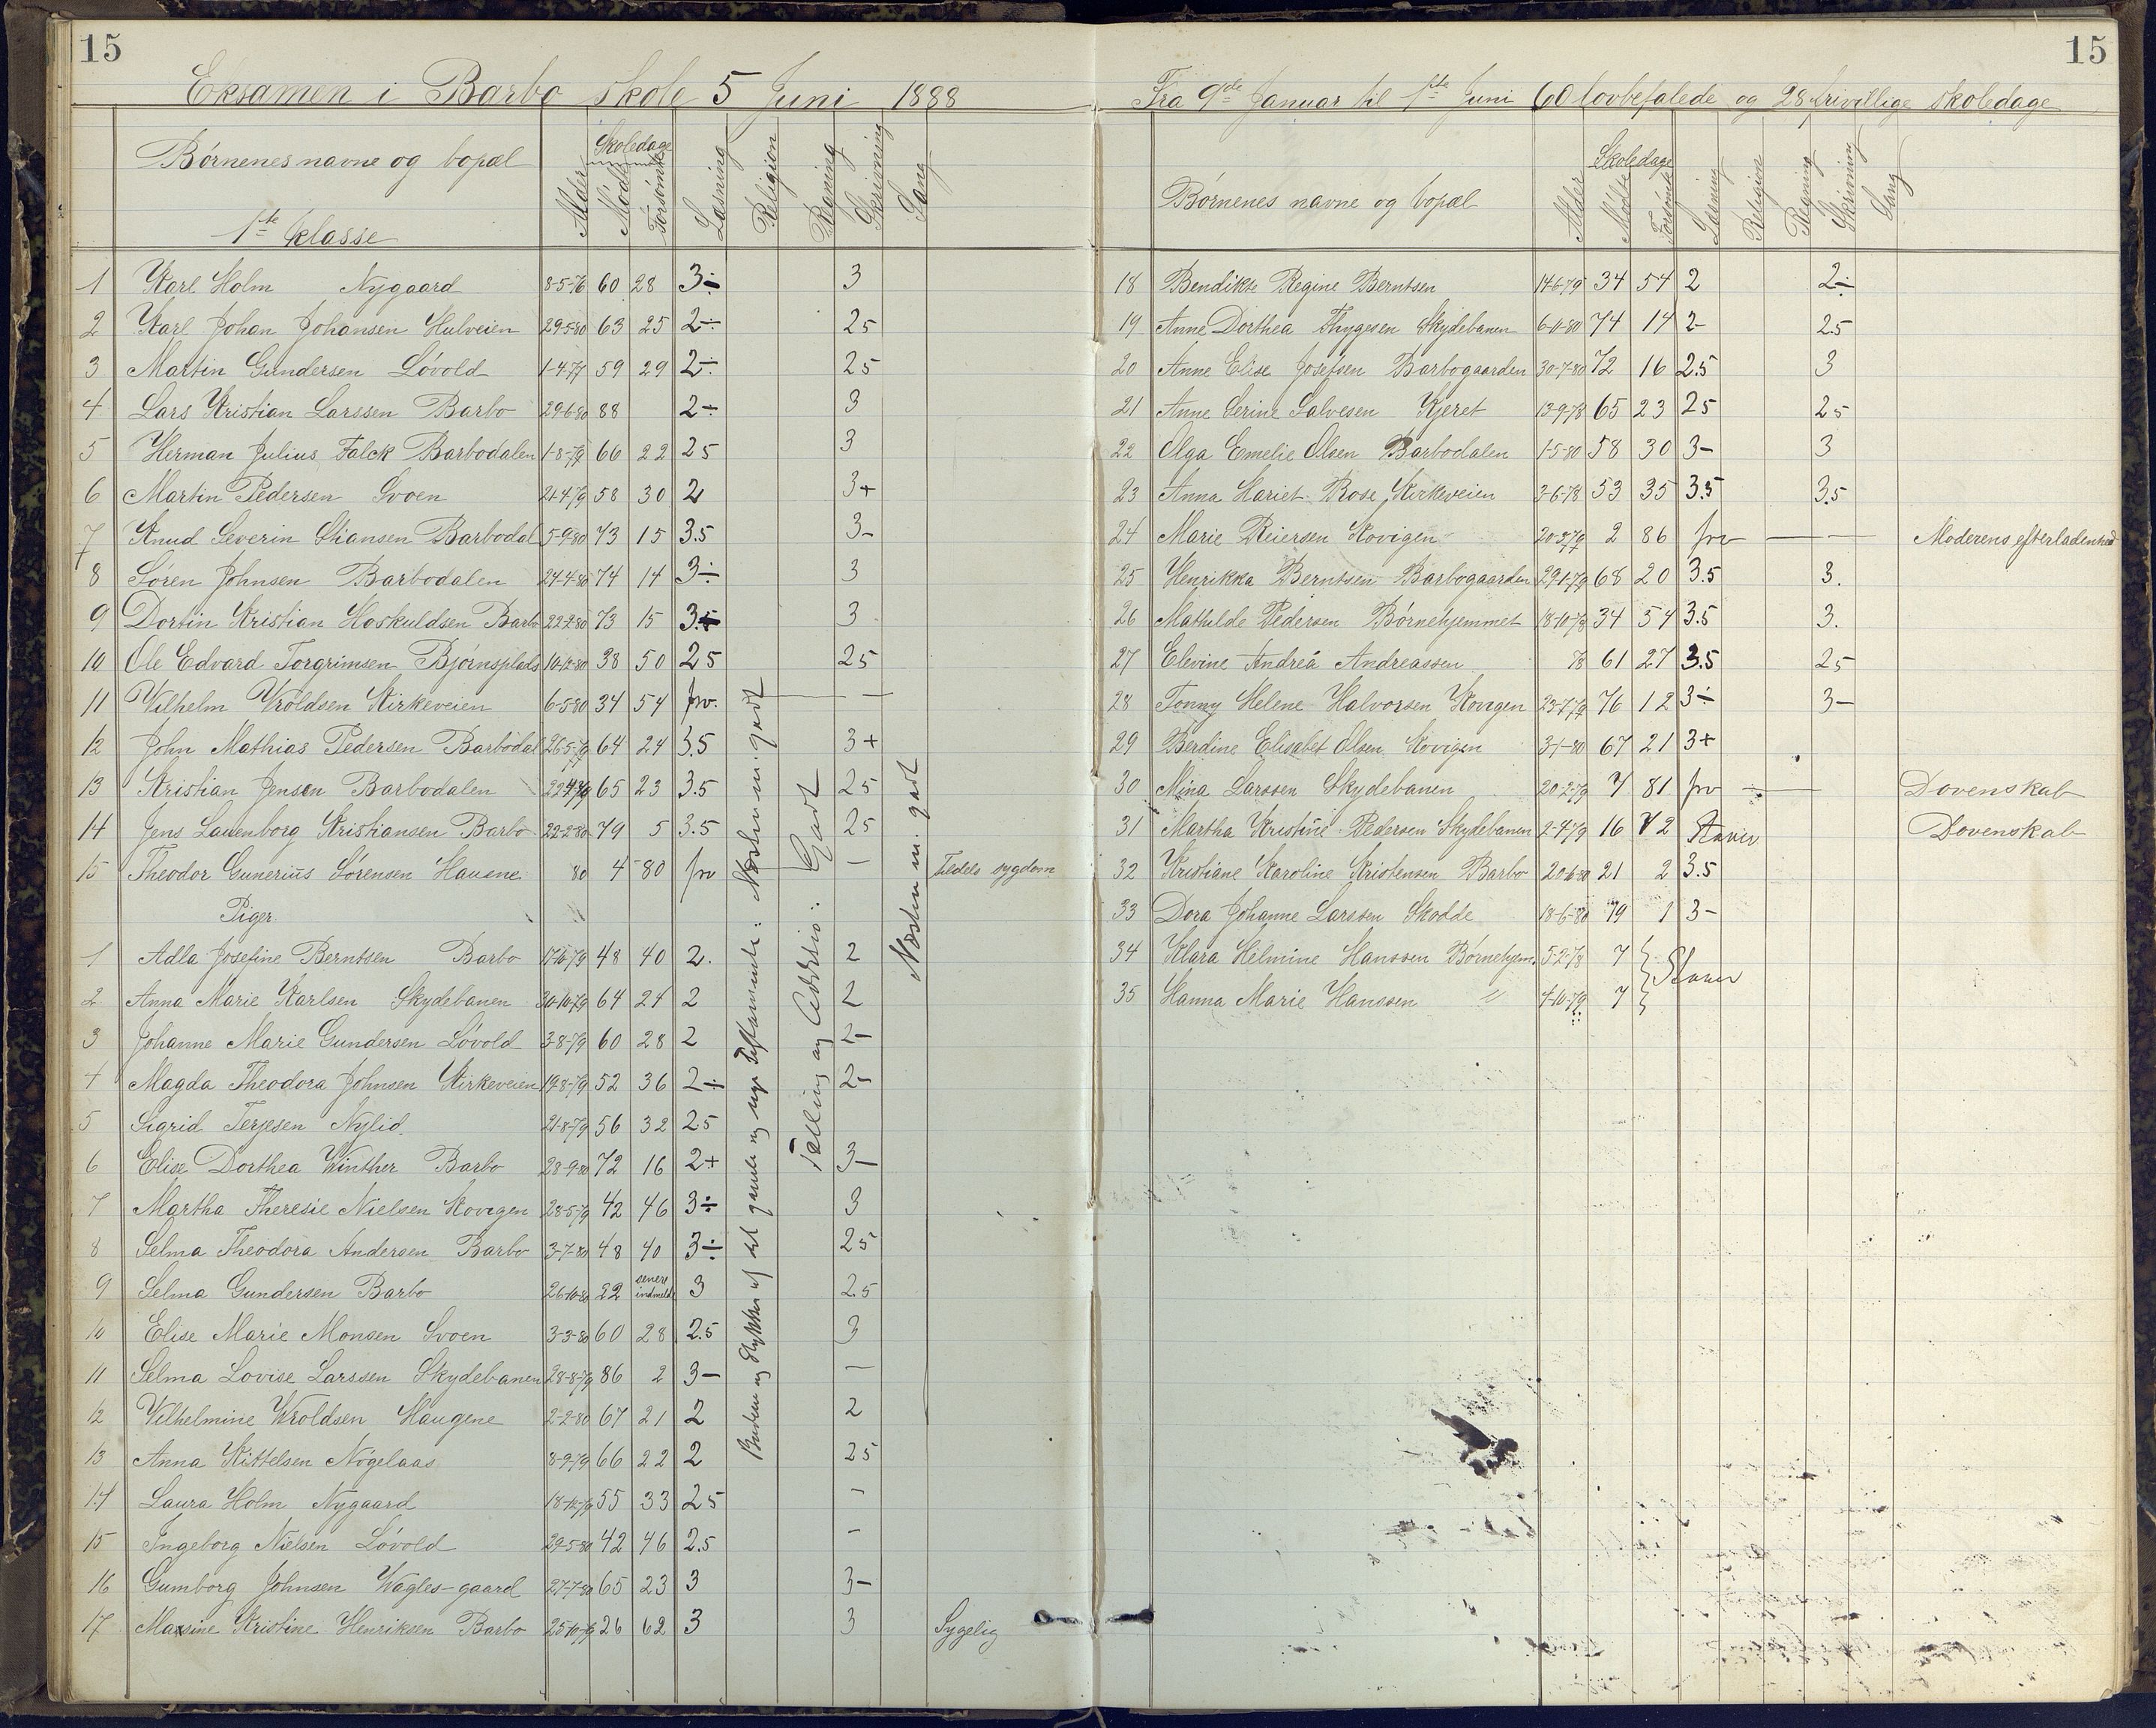 15
Eksamen i Barbo skole 5 Juni 1888
Børnenes navne og bopæl
1ste klasse
Alder
Skoledage
Mødt
Forsømt
Læsning
Religion
Regning
Skrivning
Sang
1 Karl Holm Nygaard 8-5-76 60 28 3÷ 3
2 Karl Johan Johansen Hulveien 29-5-80 63 25 2÷ 25
3 Martin Gundersen Løvold 1-4-79 59 29 2÷ 25
4 Lars Kristian Larssen Barbo 29-6-80 88 2÷ 3
5 Herman Julius Falck Barbodalen 1-8-79 66 22 25 3
6 Martin Pedersen Svoen 21-4-79 58 30 2 3+
7 Knud Severin Stiansen Barbodal 5-9-80 73 15 3.5 3-
8 Søren Johnsen Barbodalen 24-4-80 74 14 3÷ 3
9 Dortin Kristian Hoskuldsen Barbo 22-2-80 73 15 3+ 3
10 Ole Edvard Torgrimsen Bjørnsplads 10-12-80 38 50 25 25
11 Vilhelm Vroldsen Kirkeveien 6-5-80 34 54 prv. — —
12 John Mathias Pedersen Barbodal 26-5-79 64 24 3.5 3+
13 Kristian Jensen Barbodalen 22-4-79 65 23 3.5 25
14 Jens Lauenborg Kristiansen Barbo 22-2-80 79 5 3.5 25
15 Theodor Gunerius Sørensen Haugene 80 4 80 prv — tildels sygdom
Piger
1 Adla Josefine Berntsen Barbo 17-10-79 48 40 2. 2
2 Anna Marie Karlsen Skydebanen 30-10-79 64 24 2 2
3 Johanne Marie Gundersen Løvold 3-8-79 60 28 2 2-
4 Magda Theodora Johnsen Kirkeveien 19-8-79 52 36 2÷ 2-
5 Sigrid Terjesen Nylid. 21-8-79 56 32 25
6 Elise Dorthea Winther Barbo 28-9-80 72 16 2+ 3-
7 Martha Theresie Nielsen Kovigen 28-5-79 42 46 3÷ 3
8 Selma Theodora Andersen Barbo 3-7-80 48 40 3÷ 25
9 Selma Gundersen Barbo 26-10-80 22 senere indmeldt 3 2.5
10 Elise Marie Monsen Svoen 3-3-80 60 28 2.5 3
11 Selma Lovise Larssen Skydebanen 28-8-79 86 2 3- —
12 Vilhelmine Vroldsen Haugene 2-2-80 67 21 2 2
13 Anna Kittelsen Nøgelaas 8-9-79 66 22 2 25
14 Laura Holm Nygaard 18-12-79 55 33 25 -
15 Ingeborg Nielsen Løvold 29-5-80 42 46 2.5 -
16 Gumborg Johnsen Wagles-gaard 27-7-80 65 23 3 3-
17 Maxsine Kristine Henriksen Barbo 25-10-79 26 62 3 3 Sygelig
Stykker af det gamle og nye Testamente: Næsten m. godt
Tælling og Addition: Godt
Næsten m. godt
15
Fra 9de Januar til 1ste Juni 60 lovbefalede og 28 frivillige skoledage
Børnenes navne og bopæl
Alder
Skoledage
Mødt
Forsømt
Læsning
Religion
Regning
Skrivning
Sang
18 Bendikte Regine Berntsen 14-6-79 34 54 2 2÷
19 Anne Dorthea Thygesen Skydebanen 6-11-80 74 14 2- 2.5
20 Anne Elise Josefsen Barbogaarden 30-7-80 72 16 2.5 3
21 Anne Serine Salvesen Kjeret 13-9-78 65 23 25 25
22 Olga Emelie Olsen Barbodalen 1-5-80 58 30 3- 3
23 Anna Hariet Rose, Kirkeveien 3-6-78 53 35 3.5 3.5
24 Marie Reiersen Kovigen 20-3-79 2 86 prv — — Moderens efterladenhed
25 Henrikka Berntsen Barbogaarden 29-1-79 68 20 3.5 3.
26 Mathilde Pedersen Børnehjemmet 18-10-78 34 54 3.5 3.
27 Elevine Andrea Andreassen 78 61 27 3.5 25
28 Tonny Helene Halvorsen Kovigen 23-7-79 76 12 3÷ 3-
29 Berdine Elisabet Olsen Kovigen 3-1-80 67 21 3+
30 Mina Larssen Skydebanen 20-2-79 7 81 prv — Dovenskab
31 Martha Kristine Pedersen Skydebanen 2-4-79 16 72 Staver Dovenskab
32 Kristiane Karoline Kristensen Barbo 20-6-80 21 2 3.5
33 Dora Johanne Larssen Skodde 18-6-80 79 1 3-
34 Klara Hilmine Hanssen Børnehjem. 5-2-78 7 Staver
35 Hanna Marie Hanssen " 4-10-79 7